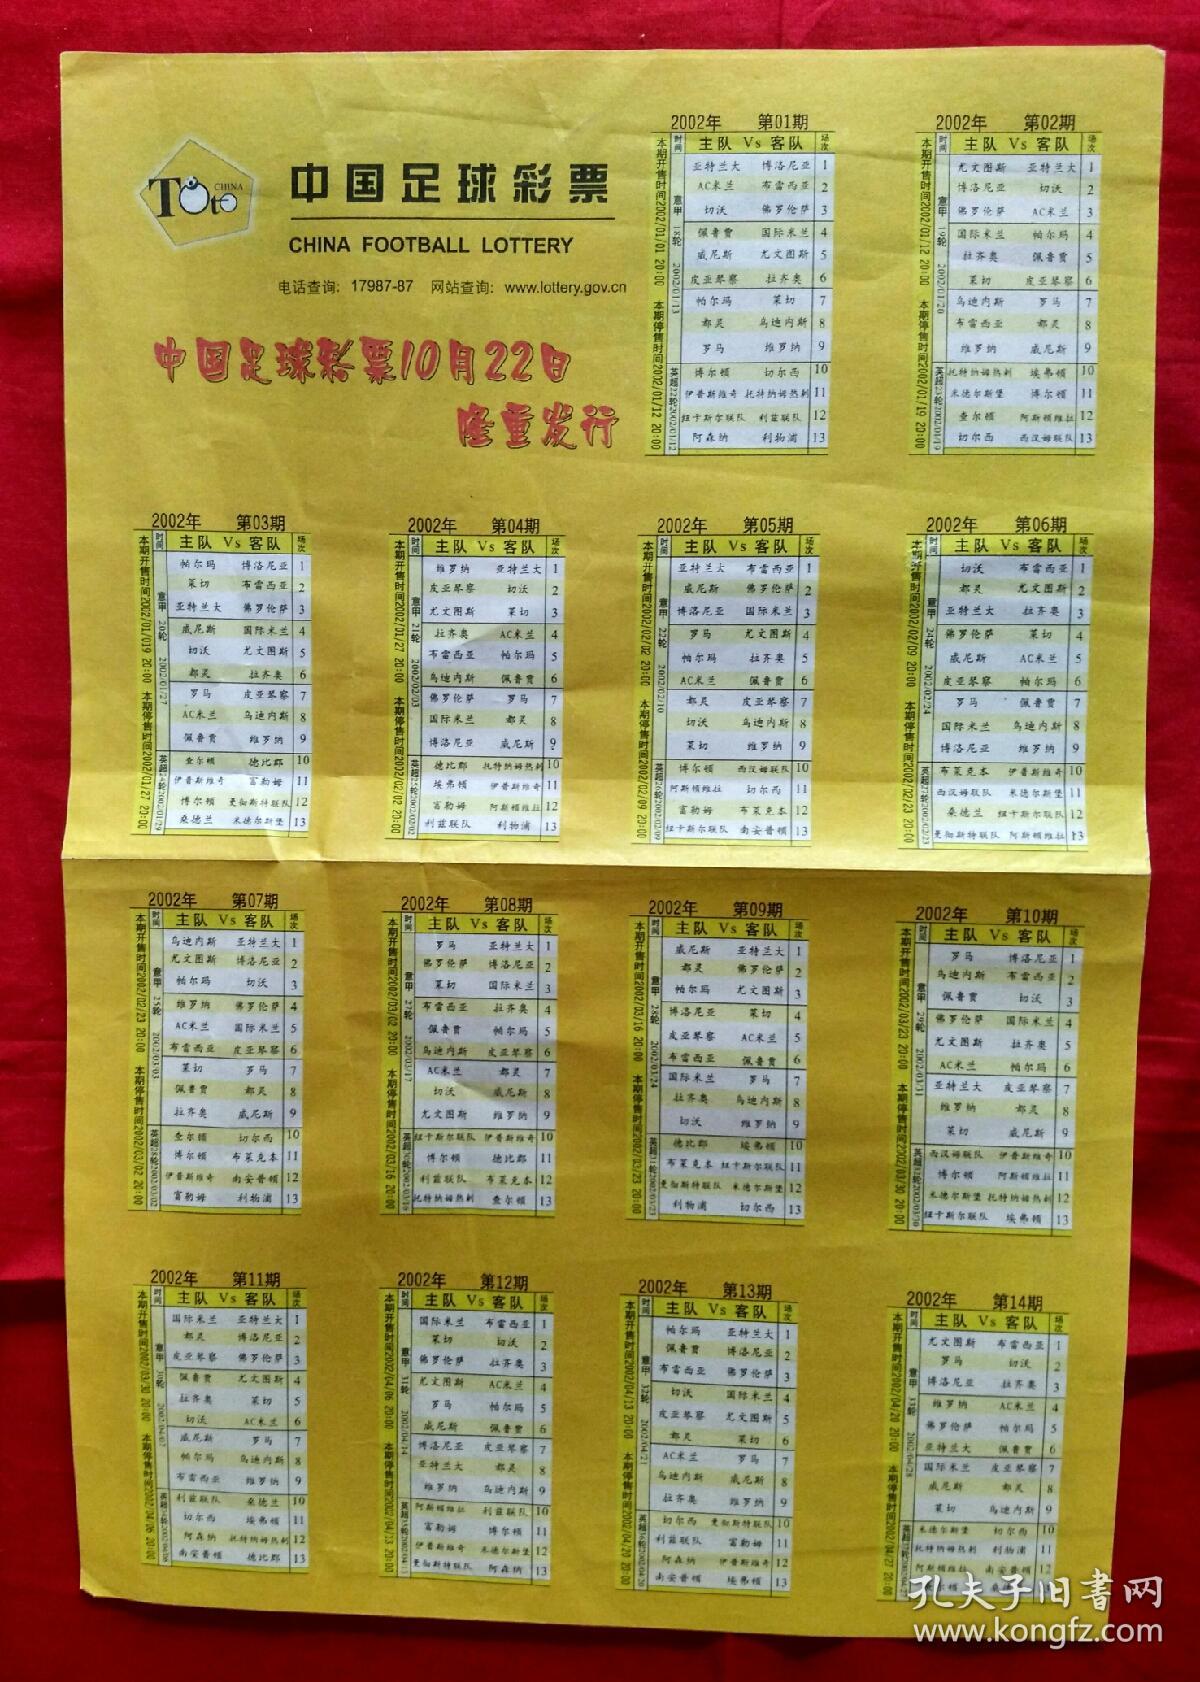 TOto CHINA
中国足球彩票
CHINA FOOTBALL LOTTERY
电话查询: 17987-87 网站查询: www.lottery.gov.cn
中国足球彩票10月22日
隆重发行
2002年 第01期
时间 主队 Vs 客队 场次
本期开售时间2002/01/01 20:00 本期停售时间2002/01/12 20:00
意甲 18轮 2002/01/13
亚特兰大 博洛尼亚 1
AC米兰 布雷西亚 2
切沃 佛罗伦萨 3
佩鲁贾 国际米兰 4
威尼斯 尤文图斯 5
皮亚琴察 拉齐奥 6
帕尔玛 莱切 7
都灵 乌迪内斯 8
罗马 维罗纳 9
英超22轮2002/01/12
博尔顿 切尔西 10
伊普斯维奇 托特纳姆热刺 11
纽卡斯尔联队 利兹联队 12
阿森纳 利物浦 13
2002年 第02期
时间 主队 Vs 客队 场次
本期开售时间2002/01/12 20:00 本期停售时间2002/01/19 20:00
意甲 19轮 2002/01/20
尤文图斯 亚特兰大 1
博洛尼亚 切沃 2
佛罗伦萨 AC米兰 3
国际米兰 帕尔玛 4
拉齐奥 佩鲁贾 5
莱切 皮亚琴察 6
乌迪内斯 罗马 7
布雷西亚 都灵 8
维罗纳 威尼斯 9
英超23轮2002/01/19
托特纳姆热刺 埃弗顿 10
米德尔斯堡 博尔顿 11
查尔顿 阿斯顿维拉 12
切尔西 西汉姆联队 13
2002年 第03期
时间 主队 Vs 客队 场次
本期开售时间2002/01/019 20:00 本期停售时间2002/01/27 20:00
意甲 20轮 2002/01/27
帕尔玛 博洛尼亚 1
莱切 布雷西亚 2
亚特兰大 佛罗伦萨 3
威尼斯 国际米兰 4
切沃 尤文图斯 5
都灵 拉齐奥 6
罗马 皮亚琴察 7
AC米兰 乌迪内斯 8
佩鲁贾 维罗纳 9
英超24轮2002/01/29
查尔顿 德比郡 10
伊普斯维奇 富勒姆 11
博尔顿 曼彻斯特联队 12
桑德兰 米德尔斯堡 13
2002年 第04期
时间 主队 Vs 客队 场次
本期开售时间2002/01/27 20:00 本期停售时间2002/02/02 20:00
意甲 21轮 2002/02/03
维罗纳 亚特兰大 1
皮亚琴察 切沃 2
尤文图斯 莱切 3
拉齐奥 AC米兰 4
布雷西亚 帕尔玛 5
乌迪内斯 佩鲁贾 6
佛罗伦萨 罗马 7
国际米兰 都灵 8
博洛尼亚 威尼斯 9
英超25轮2002/02/02
德比郡 托特纳姆热刺 10
埃弗顿 伊普斯维奇 11
富勒姆 阿斯顿维拉 12
利兹联队 利物浦 13
2002年 第05期
时间 主队 Vs 客队 场次
本期开售时间2002/02/02 20:00 本期停售时间2002/02/09 20:00
意甲 22轮 2002/02/10
亚特兰大 布雷西亚 1
威尼斯 佛罗伦萨 2
博洛尼亚 国际米兰 3
罗马 尤文图斯 4
帕尔玛 拉齐奥 5
AC米兰 佩鲁贾 6
都灵 皮亚琴察 7
切沃 乌迪内斯 8
莱切 维罗纳 9
英超26轮2002/02/09
博尔顿 西汉姆联队 10
阿斯顿维拉 切尔西 11
富勒姆 布莱克本 12
纽卡斯尔联队 南安普顿 13
2002年 第06期
时间 主队 Vs 客队 场次
本期开售时间2002/02/09 20:00 本期停售时间2002/02/23 20:00
意甲 24轮 2002/02/24
切沃 布雷西亚 1
都灵 尤文图斯 2
亚特兰大 拉齐奥 3
佛罗伦萨 莱切 4
威尼斯 AC米兰 5
皮亚琴察 帕尔玛 6
罗马 佩鲁贾 7
国际米兰 乌迪内斯 8
博洛尼亚 维罗纳 9
英超27轮2002/02/23
布莱克本 伊普斯维奇 10
西汉姆联队 米德尔斯堡 11
桑德兰 纽卡斯尔联队 12
曼彻斯特联队 阿斯顿维拉 13
2002年 第07期
时间 主队 Vs 客队 场次
本期开售时间2002/02/23 20:00 本期停售时间2002/03/02 20:00
意甲 25轮 2002/03/03
乌迪内斯 亚特兰大 1
尤文图斯 博洛尼亚 2
帕尔玛 切沃 3
维罗纳 佛罗伦萨 4
AC米兰 国际米兰 5
布雷西亚 皮亚琴察 6
莱切 罗马 7
佩鲁贾 都灵 8
拉齐奥 威尼斯 9
英超28轮2002/03/02
查尔顿 切尔西 10
博尔顿 布莱克本 11
伊普斯维奇 南安普顿 12
富勒姆 利物浦 13
2002年 第08期
时间 主队 Vs 客队 场次
本期开售时间2002/03/02 20:00 本期停售时间2002/03/16 20:00
意甲 27轮 2002/03/17
罗马 亚特兰大 1
佛罗伦萨 博洛尼亚 2
莱切 国际米兰 3
布雷西亚 拉齐奥 4
佩鲁贾 帕尔玛 5
乌迪内斯 皮亚琴察 6
AC米兰 都灵 7
切沃 威尼斯 8
尤文图斯 维罗纳 9
英超30轮2002/03/16
纽卡斯尔联队 伊普斯维奇 10
博尔顿 德比郡 11
利兹联队 布莱克本 12
托特纳姆热刺 查尔顿 13
2002年 第09期
时间 主队 Vs 客队 场次
本期开售时间2002/03/16 20:00 本期停售时间2002/03/23 20:00
意甲 28轮 2002/03/24
威尼斯 亚特兰大 1
都灵 佛罗伦萨 2
帕尔玛 尤文图斯 3
博洛尼亚 莱切 4
皮亚琴察 AC米兰 5
布雷西亚 佩鲁贾 6
国际米兰 罗马 7
拉齐奥 乌迪内斯 8
切沃 维罗纳 9
英超31轮2002/03/23
德比郡 埃弗顿 10
布莱克本 纽卡斯尔联队 11
曼彻斯特联队 米德尔斯堡 12
利物浦 切尔西 13
2002年 第10期
时间 主队 Vs 客队 场次
本期开售时间2002/03/23 20:00 本期停售时间2002/03/30 20:00
意甲 29轮 2002/03/31
罗马 博洛尼亚 1
乌迪内斯 布雷西亚 2
佩鲁贾 切沃 3
佛罗伦萨 国际米兰 4
尤文图斯 拉齐奥 5
AC米兰 帕尔玛 6
亚特兰大 皮亚琴察 7
维罗纳 都灵 8
莱切 威尼斯 9
英超32轮2002/03/30
西汉姆联队 伊普斯维奇 10
博尔顿 阿斯顿维拉 11
米德尔斯堡 托特纳姆热刺 12
纽卡斯尔联队 埃弗顿 13
2002年 第11期
时间 主队 Vs 客队 场次
本期开售时间2002/03/30 20:00 本期停售时间2002/04/06 20:00
意甲 30轮 2002/04/07
国际米兰 亚特兰大 1
都灵 博洛尼亚 2
皮亚琴察 佛罗伦萨 3
佩鲁贾 尤文图斯 4
拉齐奥 莱切 5
切沃 AC米兰 6
威尼斯 罗马 7
帕尔玛 乌迪内斯 8
布雷西亚 维罗纳 9
英超34轮2002/04/06
利兹联队 桑德兰 10
切尔西 埃弗顿 11
阿森纳 托特纳姆热刺 12
南安普顿 德比郡 13
2002年 第12期
时间 主队 Vs 客队 场次
本期开售时间2002/04/06 20:00 本期停售时间2002/04/13 20:00
意甲 31轮 2002/04/14
国际米兰 布雷西亚 1
莱切 切沃 2
佛罗伦萨 拉齐奥 3
尤文图斯 AC米兰 4
罗马 帕尔玛 5
威尼斯 佩鲁贾 6
博洛尼亚 皮亚琴察 7
亚特兰大 都灵 8
维罗纳 乌迪内斯 9
英超35轮2002/04/13
阿斯顿维拉 利兹联队 10
富勒姆 博尔顿 11
伊普斯维奇 米德尔斯堡 12
曼彻斯特联队 阿森纳 13
2002年 第13期
时间 主队 Vs 客队 场次
本期开售时间2002/04/13 20:00 本期停售时间2002/04/20 20:00
意甲 32轮 2002/04/21
帕尔玛 亚特兰大 1
佩鲁贾 博洛尼亚 2
布雷西亚 佛罗伦萨 3
切沃 国际米兰 4
皮亚琴察 尤文图斯 5
都灵 莱切 6
AC米兰 罗马 7
乌迪内斯 威尼斯 8
拉齐奥 维罗纳 9
英超36轮2002/04/20
切尔西 曼彻斯特联队 10
利兹联队 富勒姆 11
阿森纳 伊普斯维奇 12
南安普顿 埃弗顿 13
2002年 第14期
时间 主队 Vs 客队 场次
本期开售时间2002/04/20 20:00 本期停售时间2002/04/27 20:00
意甲 33轮 2002/04/28
尤文图斯 布雷西亚 1
罗马 切沃 2
博洛尼亚 拉齐奥 3
维罗纳 AC米兰 4
佛罗伦萨 帕尔玛 5
亚特兰大 佩鲁贾 6
国际米兰 皮亚琴察 7
威尼斯 都灵 8
莱切 乌迪内斯 9
英超37轮2002/04/27
米德尔斯堡 切尔西 10
托特纳姆热刺 利物浦 11
阿斯顿维拉 南安普顿 12
桑德兰 13
孔夫子旧书网
www.kongfz.com